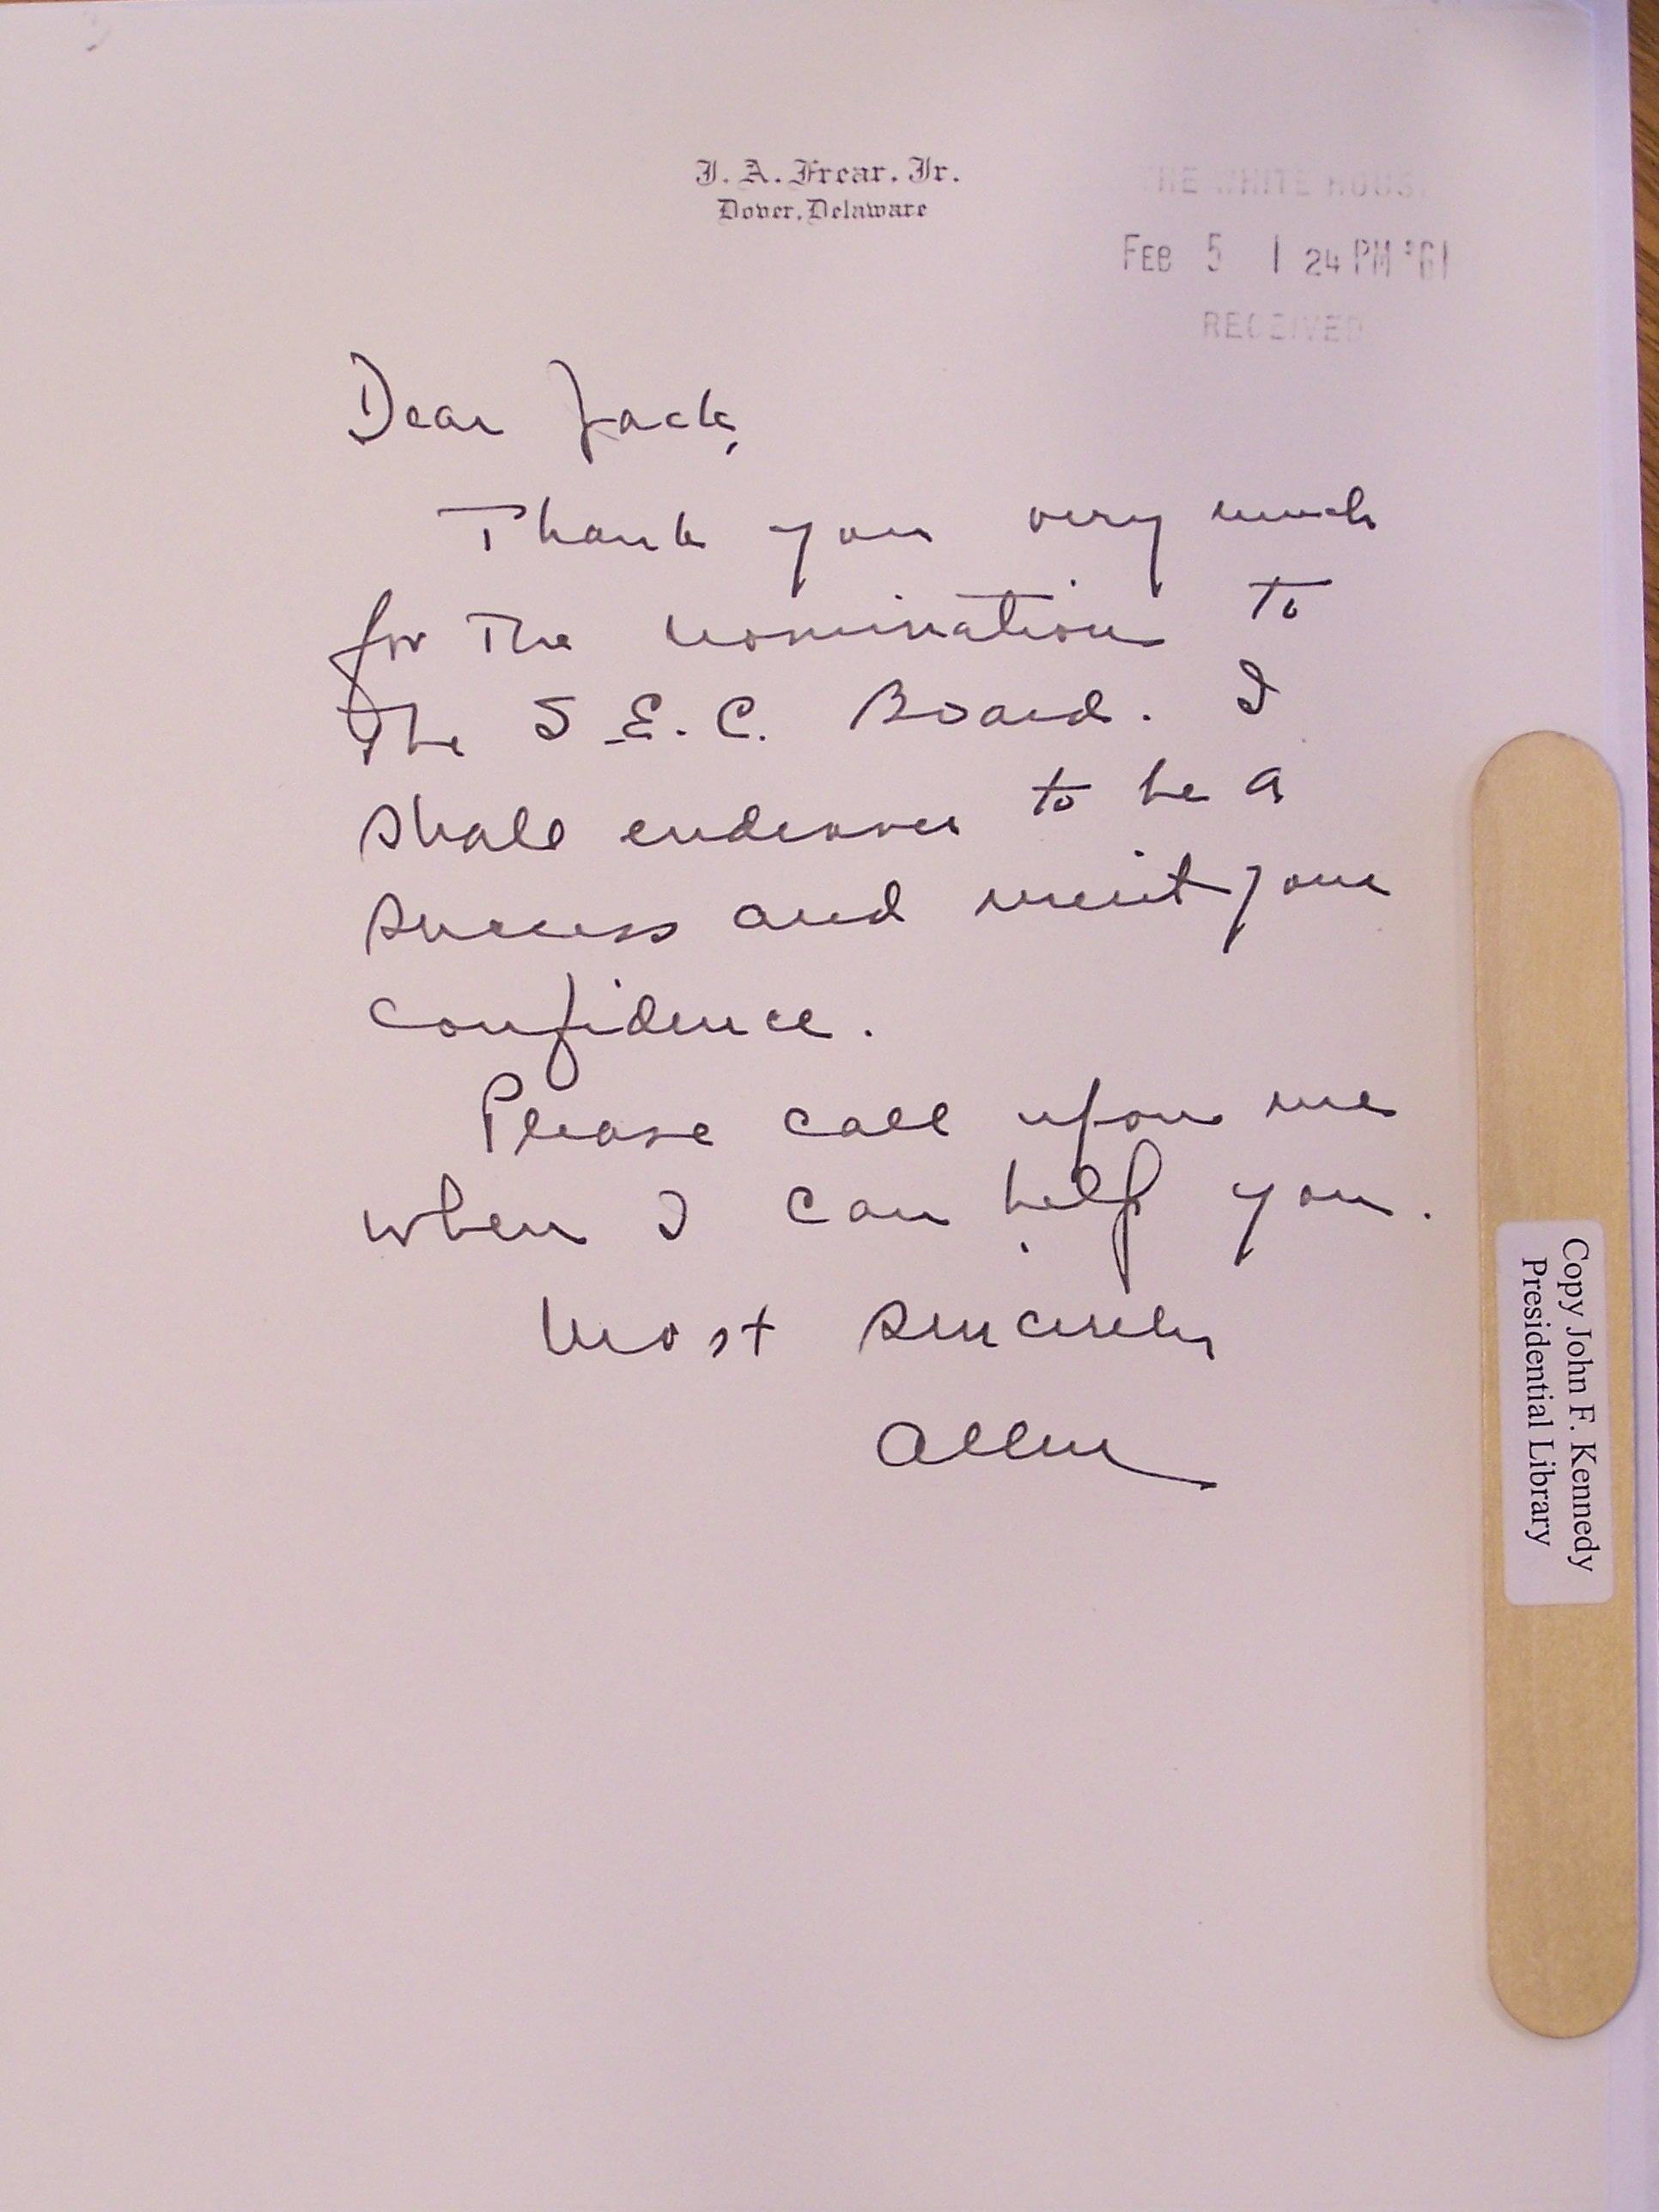 J. A. Frear, Jr.
Dover, Delaware
THE WHITE HOUS
FEB 5 1 24 PM '61
RECEIVED
Dear Jack,
Thank you very much
for the nomination to
the S.E.C. Board. I
shall endeavor to be a
success and merit your
confidence.
Please call upon me
when I can help you.
Most sincerely
Allen
Copy John F. Kennedy
Presidential Library